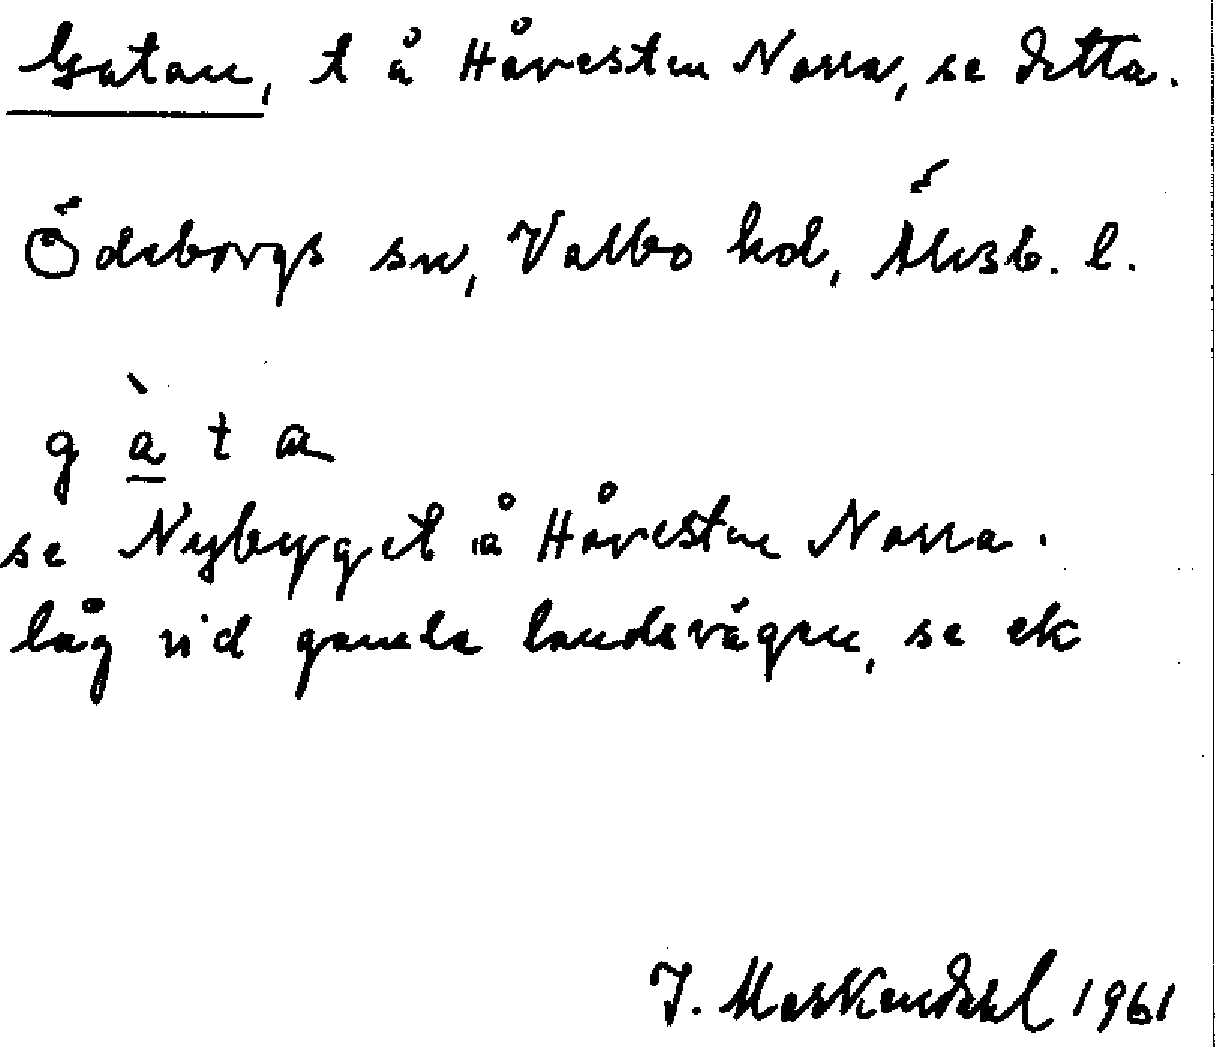 Gatan, t å Håvesten Norra, se detta.
Ödeborgs sn, Valbo hd, Älvsb. l.
g à t a
se Nybygget å Håvesten Norra.
låg vid gamla landsvägen, se ek
J. Moskendahl 1961